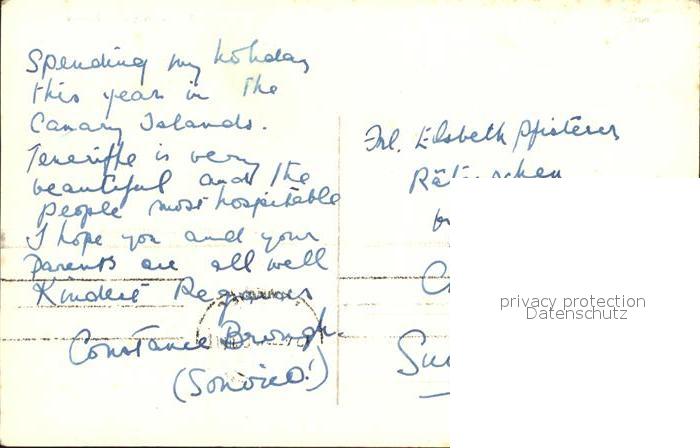 Spending my holiday
this year in the
Canary Islands.
Teneriffe is very
beautiful and the
people most hospitable
I hope you and your
parents are all well
Kindest Regards
Constance Brough.
(Sonvico!)
Frl. Elsbeth Pfisterer
privacy protection
Datenschutz